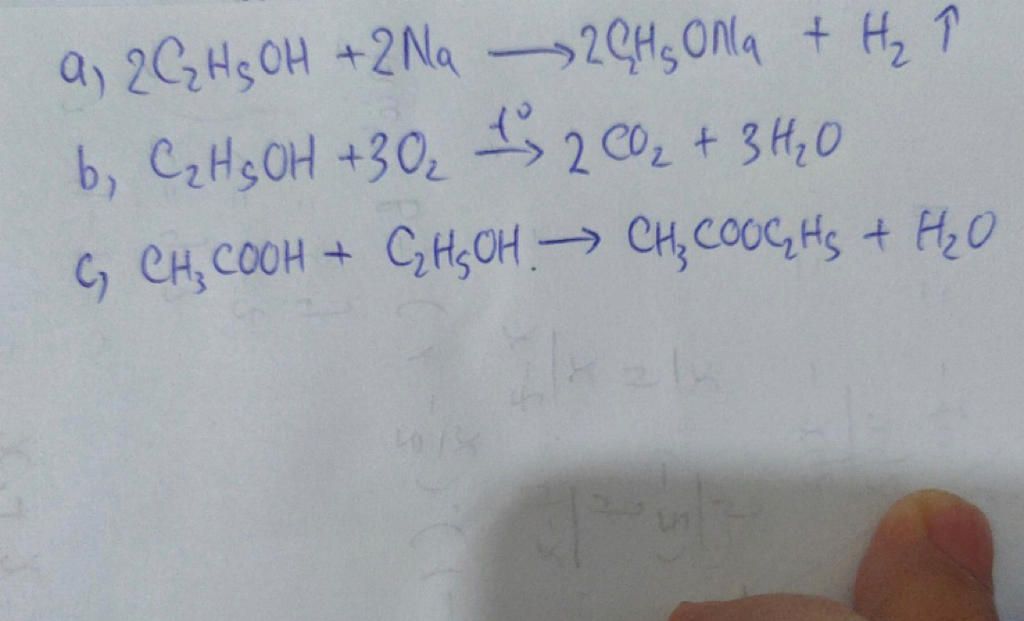 a, 2C₂H₅OH + 2Na ⟶ 2C₂H₅ONa + H₂ ↑
b, C₂H₅OH + 3O₂ t° ⟶ 2CO₂ + 3H₂O
c, CH₃COOH + C₂H₅OH. ⟶ CH₃COOC₂H₅ + H₂O